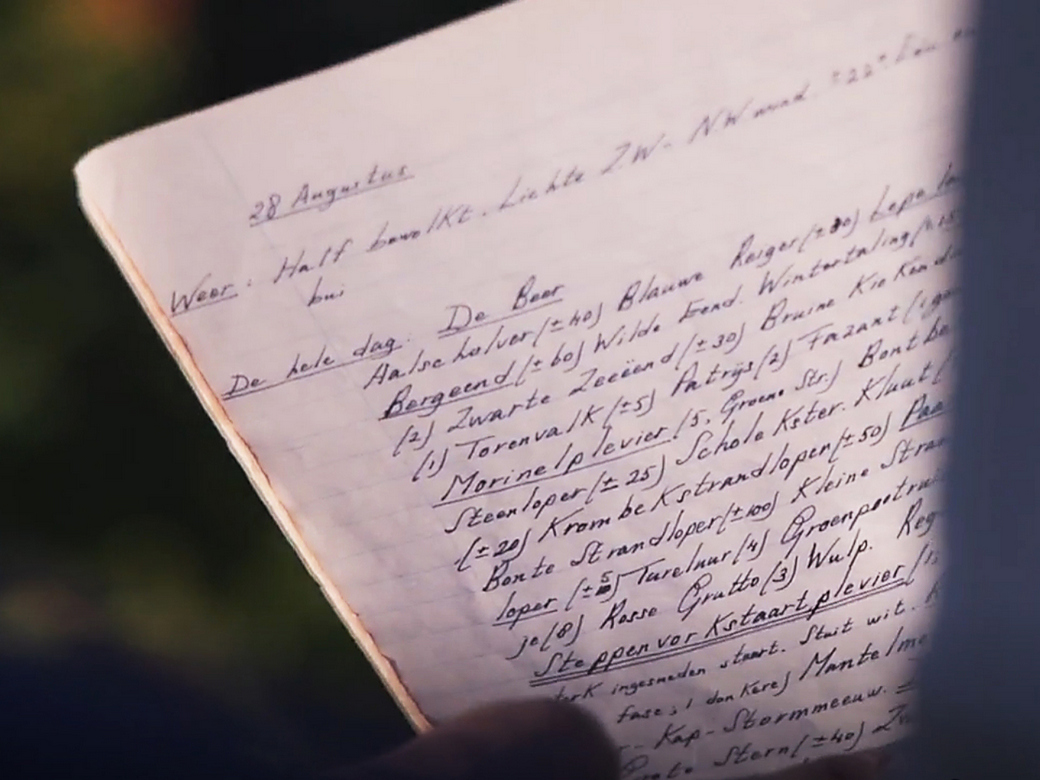 28 Augustus
Weer: Half bewolkt. Lichte Z.W- N.W wind. ±22°
bui
De hele dag: De Beer
Aalscholver (±40) Blauwe Reiger (±80) Lepelaar
Bergeend (±60) Wilde Eend. Wintertaling (±15
(2) Zwarte Zeeëend (±30) Bruine Kiekendi
(1) Torenvalk (±5) Patrijs (2) Fazant (1,
Morinelplevier (5, Groene Str.) Bontbe
Steenloper (±25) Scholekster. Kluut (
(±20) Krombekstrandloper (±50) Paa
Bonte Strandloper (±100) Kleine Stran
loper (±5) Tureluur (4) Groenpootrui
je (8) Rosse Grutto (3) Wulp. Reg
Steppenvorkstaartplevier (1,
terk ingesneden staart. Stuit wit.
fase, 1 donkere) Mantelme
- Kap- Stormmeeuw.
Grote Stern (±40)